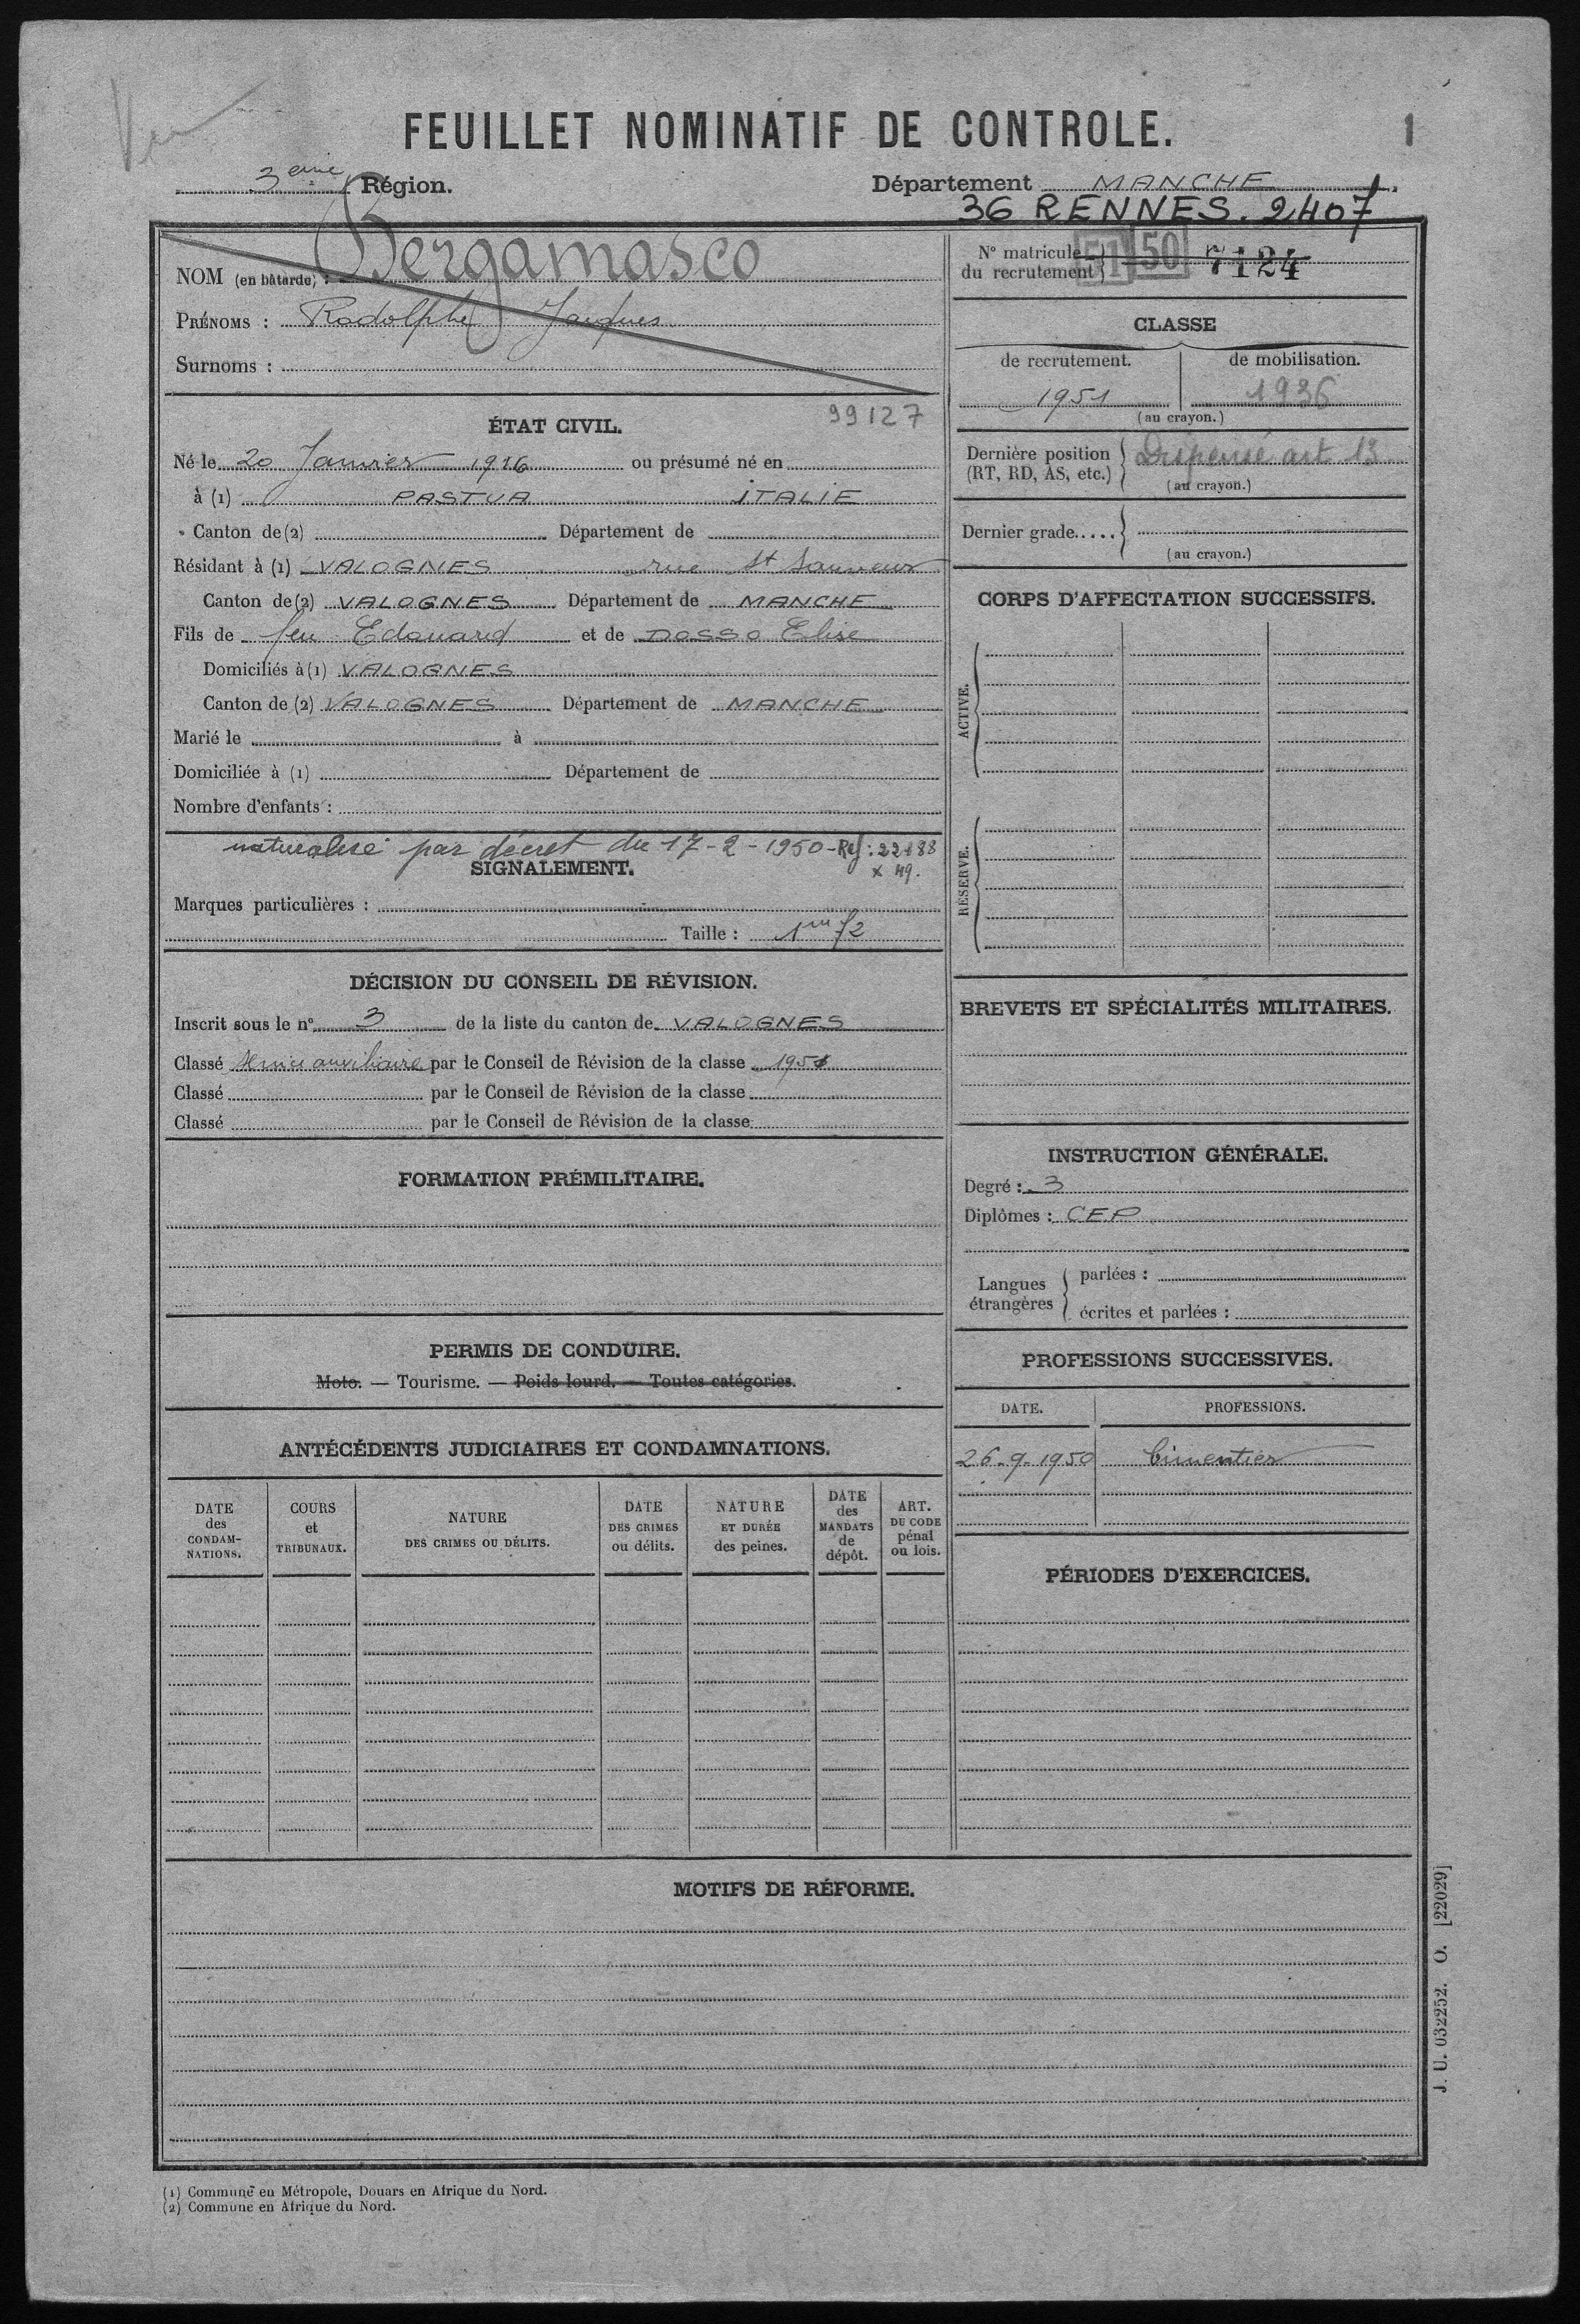 Vu
FEUILLET NOMINATIF DE CONTROLE.
1
3eme Région.
Département MANCHE
36 RENNES. 2407
NOM (en bâtarde) : Bergamasco
PRÉNOMS : Rodolphe Jacques
Surnoms :
N° matricule du recrutement 51 50 7124
CLASSE
de recrutement. de mobilisation.
1951 1936
(au crayon.)
Dernière position (RT, RD, AS, etc.) Dispensé art 13
(au crayon.)
Dernier grade.....
(au crayon.)
99127
ÉTAT CIVIL.
Né le 20 Janvier 1916 ou présumé né en
à (1) PASTUA ITALIE
Canton de (2) Département de
Résidant à (1) VALOGNES rue St Sauveur
Canton de (2) VALOGNES Département de MANCHE
Fils de feu Edouard et de DOSSO Elise
Domiciliés à (1) VALOGNES
Canton de (2) VALOGNES Département de MANCHE
Marié le à
Domiciliée à (1) Département de
Nombre d'enfants :
naturalisé par décret du 17-2-1950 - Ref : 22188
x 49.
SIGNALEMENT.
Marques particulières :
Taille : 1m 72
DÉCISION DU CONSEIL DE RÉVISION.
Inscrit sous le n° 3 de la liste du canton de VALOGNES
Classé Service auxiliaire par le Conseil de Révision de la classe 1951
Classé par le Conseil de Révision de la classe
Classé par le Conseil de Révision de la classe
FORMATION PRÉMILITAIRE.
PERMIS DE CONDUIRE.
Moto. — Tourisme. — Poids lourd. — Toutes catégories.
ANTÉCÉDENTS JUDICIAIRES ET CONDAMNATIONS.
DATE des CONDAMNATIONS.
COURS et TRIBUNAUX.
NATURE DES CRIMES OU DÉLITS.
DATE DES CRIMES ou délits.
NATURE ET DURÉE des peines.
DATE des MANDATS de dépôt.
ART. DU CODE pénal ou lois.
CORPS D'AFFECTATION SUCCESSIFS.
ACTIVE.
RÉSERVE.
BREVETS ET SPÉCIALITÉS MILITAIRES.
INSTRUCTION GÉNÉRALE.
Degré : 3
Diplômes : CEP
Langues étrangères
parlées :
écrites et parlées :
PROFESSIONS SUCCESSIVES.
DATE. PROFESSIONS.
26-9-1950 Cimentier
PÉRIODES D'EXERCICES.
MOTIFS DE RÉFORME.
(1) Commune en Métropole, Douars en Afrique du Nord.
(2) Commune en Afrique du Nord.
J. U. 032252. O. [22029]